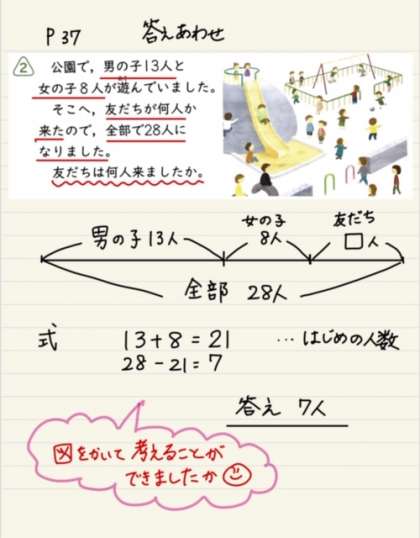 P 37 答えあわせ
2 公園で,男の子13人と
女の子8人が遊んでいました。
そこへ,友だちが何人か
来たので,全部で28人に
なりました。
友だちは何人来ましたか。
男の子13人 女の子8人 友だち□人
全部 28人
式 13+8=21 …はじめの人数
28-21=7
答え 7人
図をかいて考えることが
できましたか